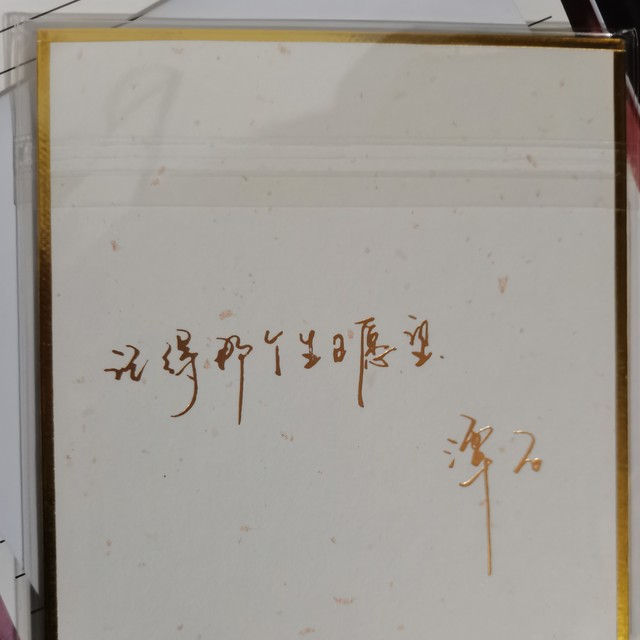 记得那个生日愿望.
潭石